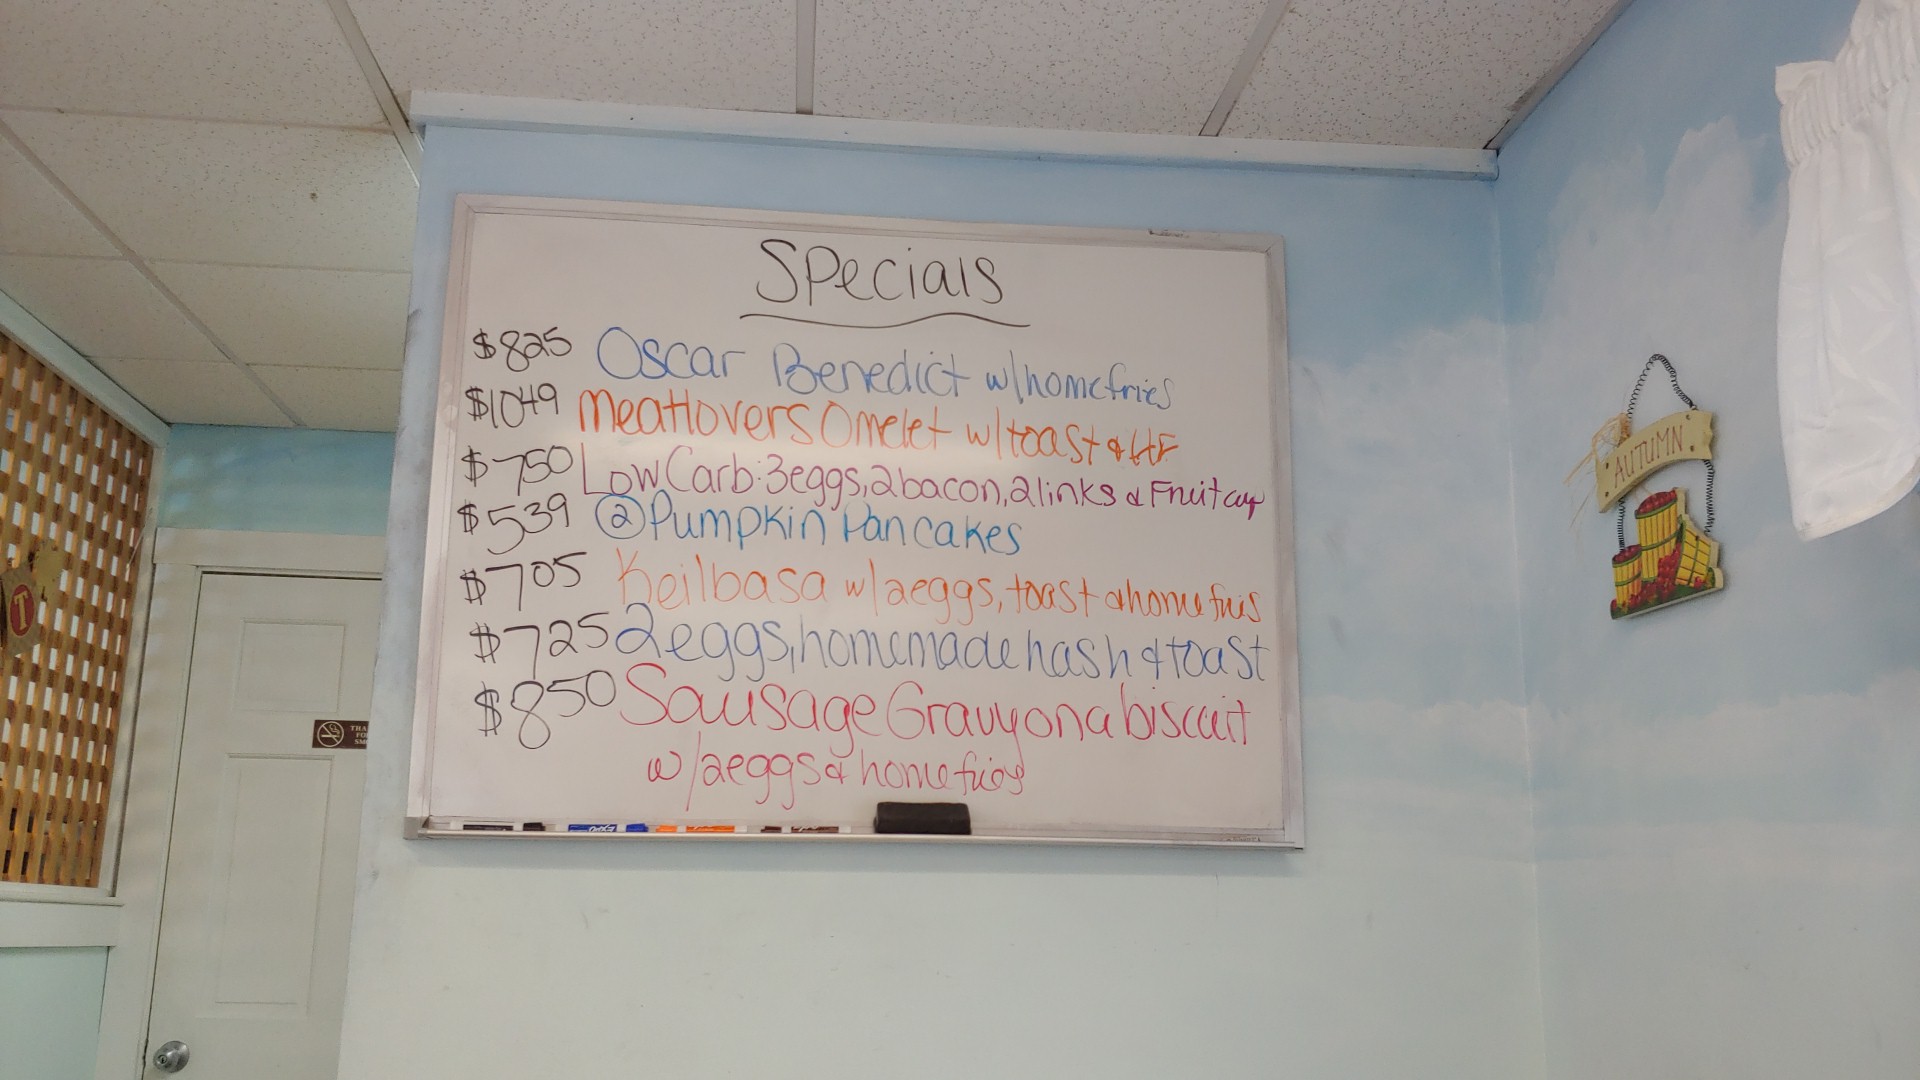 Specials
$825 Oscar Benedict w/homefries
$1049 Meatlovers Omelet w/toast & HF
$750 Low Carb: 3eggs, 2bacon, 2links & Fruit cup
$539 ② Pumpkin Pancakes
$705 Keilbasa w/2eggs, toast & homefries
$725 2eggs, homemade hash & toast
$850 Sausage Gravy on a biscuit
w/2eggs & homefries
AUTUMN
T